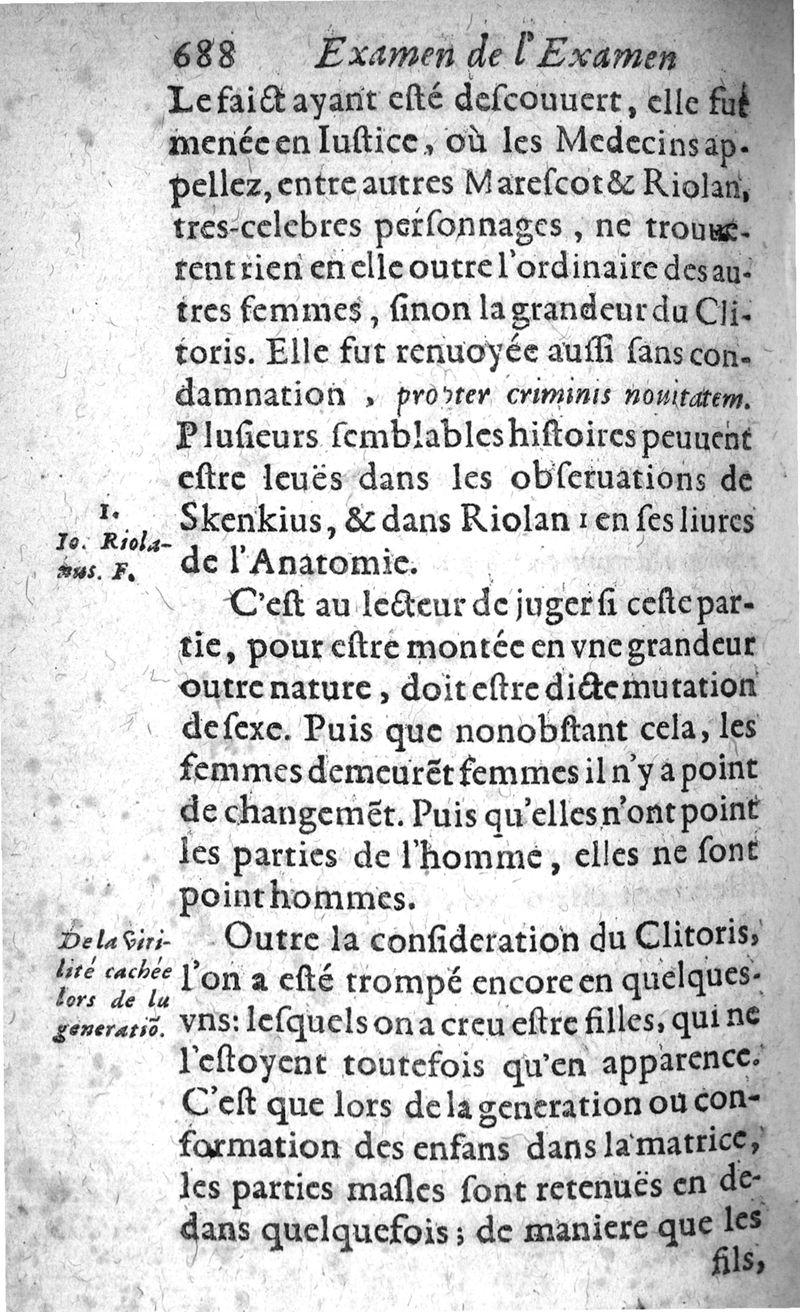 688 Examen de l'Examen
Le faict ayant eſté deſcouuert, elle fut
menée en Iuſtice, où les Medecins ap-
pellez, entre autres Mareſcot & Riolan,
tres-celebres perſonnages, ne trouue-
rent rien en elle outre l'ordinaire des au-
tres femmes, ſinon la grandeur du Cli-
toris. Elle fut renuoyée auſſi ſans con-
damnation, propter criminis nouitatem.
Pluſieurs ſemblables hiſtoires peuuent
eſtre leuës dans les obſeruations de
I.
Skenkius, & dans Riolan 1 en ſes liures
Io. Riola-
nus. F.
de l'Anatomie.
C'eſt au lecteur de juger ſi ceſte par-
tie, pour eſtre montée en vne grandeur
outre nature, doit eſtre dicte mutation
de ſexe. Puis que nonobſtant cela, les
femmes demeurẽt femmes il n'y a point
de changemẽt. Puis qu'elles n'ont point
les parties de l'homme, elles ne ſont
point hommes.
De la Viri-
lité cachée
lors de la
generatiõ.
Outre la conſideration du Clitoris,
l'on a eſté trompé encore en quelques-
vns: leſquels on a creu eſtre filles, qui ne
l'eſtoyent toutefois qu'en apparence.
C'eſt que lors de la generation ou con-
formation des enfans dans la matrice,
les parties maſles ſont retenuës en de-
dans quelquefois; de maniere que les
fils,